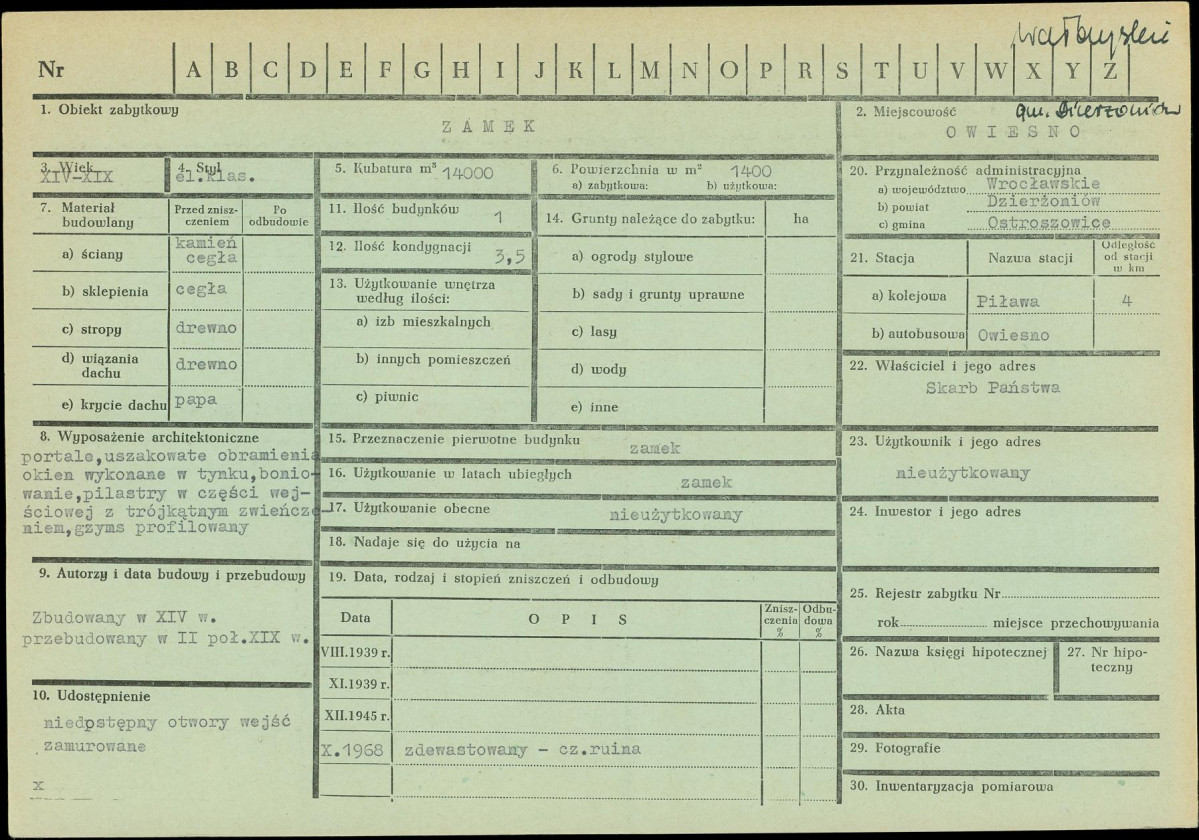 wałbrzyskie
Nr A B C D E F G H I J K L M N O P R S T U V W X Y Z
1. Obiekt zabytkowy
Z A M E K
2. Miejscowość
gm. Dzierżoniów
O W I E S N O
3. Wiek
XIV-XIX
4. Styl
el.klas.
5. Kubatura m³ 14000
6. Powierzchnia w m² 1400
a) zabytkowa: b) użytkowa:
20. Przynależność administracyjna
a) województwo Wrocławskie
b) powiat Dzierżoniów
c) gmina Ostroszowice
7. Materiał budowlany
Przed znisz-
czeniem
Po
odbudowie
a) ściany kamień
cegła
b) sklepienia cegła
c) stropy drewno
d) wiązania
dachu drewno
e) krycie dachu papa
11. Ilość budynków 1
12. Ilość kondygnacji 3,5
13. Użytkowanie wnętrza
według ilości:
a) izb mieszkalnych
b) innych pomieszczeń
c) piwnic
14. Grunty należące do zabytku: ha
a) ogrody stylowe
b) sady i grunty uprawne
c) lasy
d) wody
e) inne
21. Stacja Nazwa stacji Odległość
od stacji
w km
a) kolejowa Piława 4
b) autobusowa Owiesno
22. Właściciel i jego adres
Skarb Państwa
8. Wyposażenie architektoniczne
portale,uszakowate obramienia
okien wykonane w tynku,bonio-
wanie,pilastry w części wej-
ściowej z trójkątnym zwieńcze-
niem,gzyms profilowany
15. Przeznaczenie pierwotne budynku
zamek
16. Użytkowanie w latach ubiegłych
zamek
17. Użytkowanie obecne nieużytkowany
18. Nadaje się do użycia na
23. Użytkownik i jego adres
nieużytkowany
24. Inwestor i jego adres
9. Autorzy i data budowy i przebudowy
Zbudowany w XIV w.
przebudowany w II poł.XIX w.
19. Data, rodzaj i stopień zniszczeń i odbudowy
Data O P I S Znisz-
czenia
% Odbu-
dowa
%
VIII.1939 r.
XI.1939 r.
XII.1945 r.
X.1968 zdewastowany - cz.ruina
25. Rejestr zabytku Nr
rok miejsce przechowywania
26. Nazwa księgi hipotecznej
27. Nr hipo-
teczny
28. Akta
29. Fotografie
30. Inwentaryzacja pomiarowa
10. Udostępnienie
niedpstępny otwory wejść
zamurowane
x